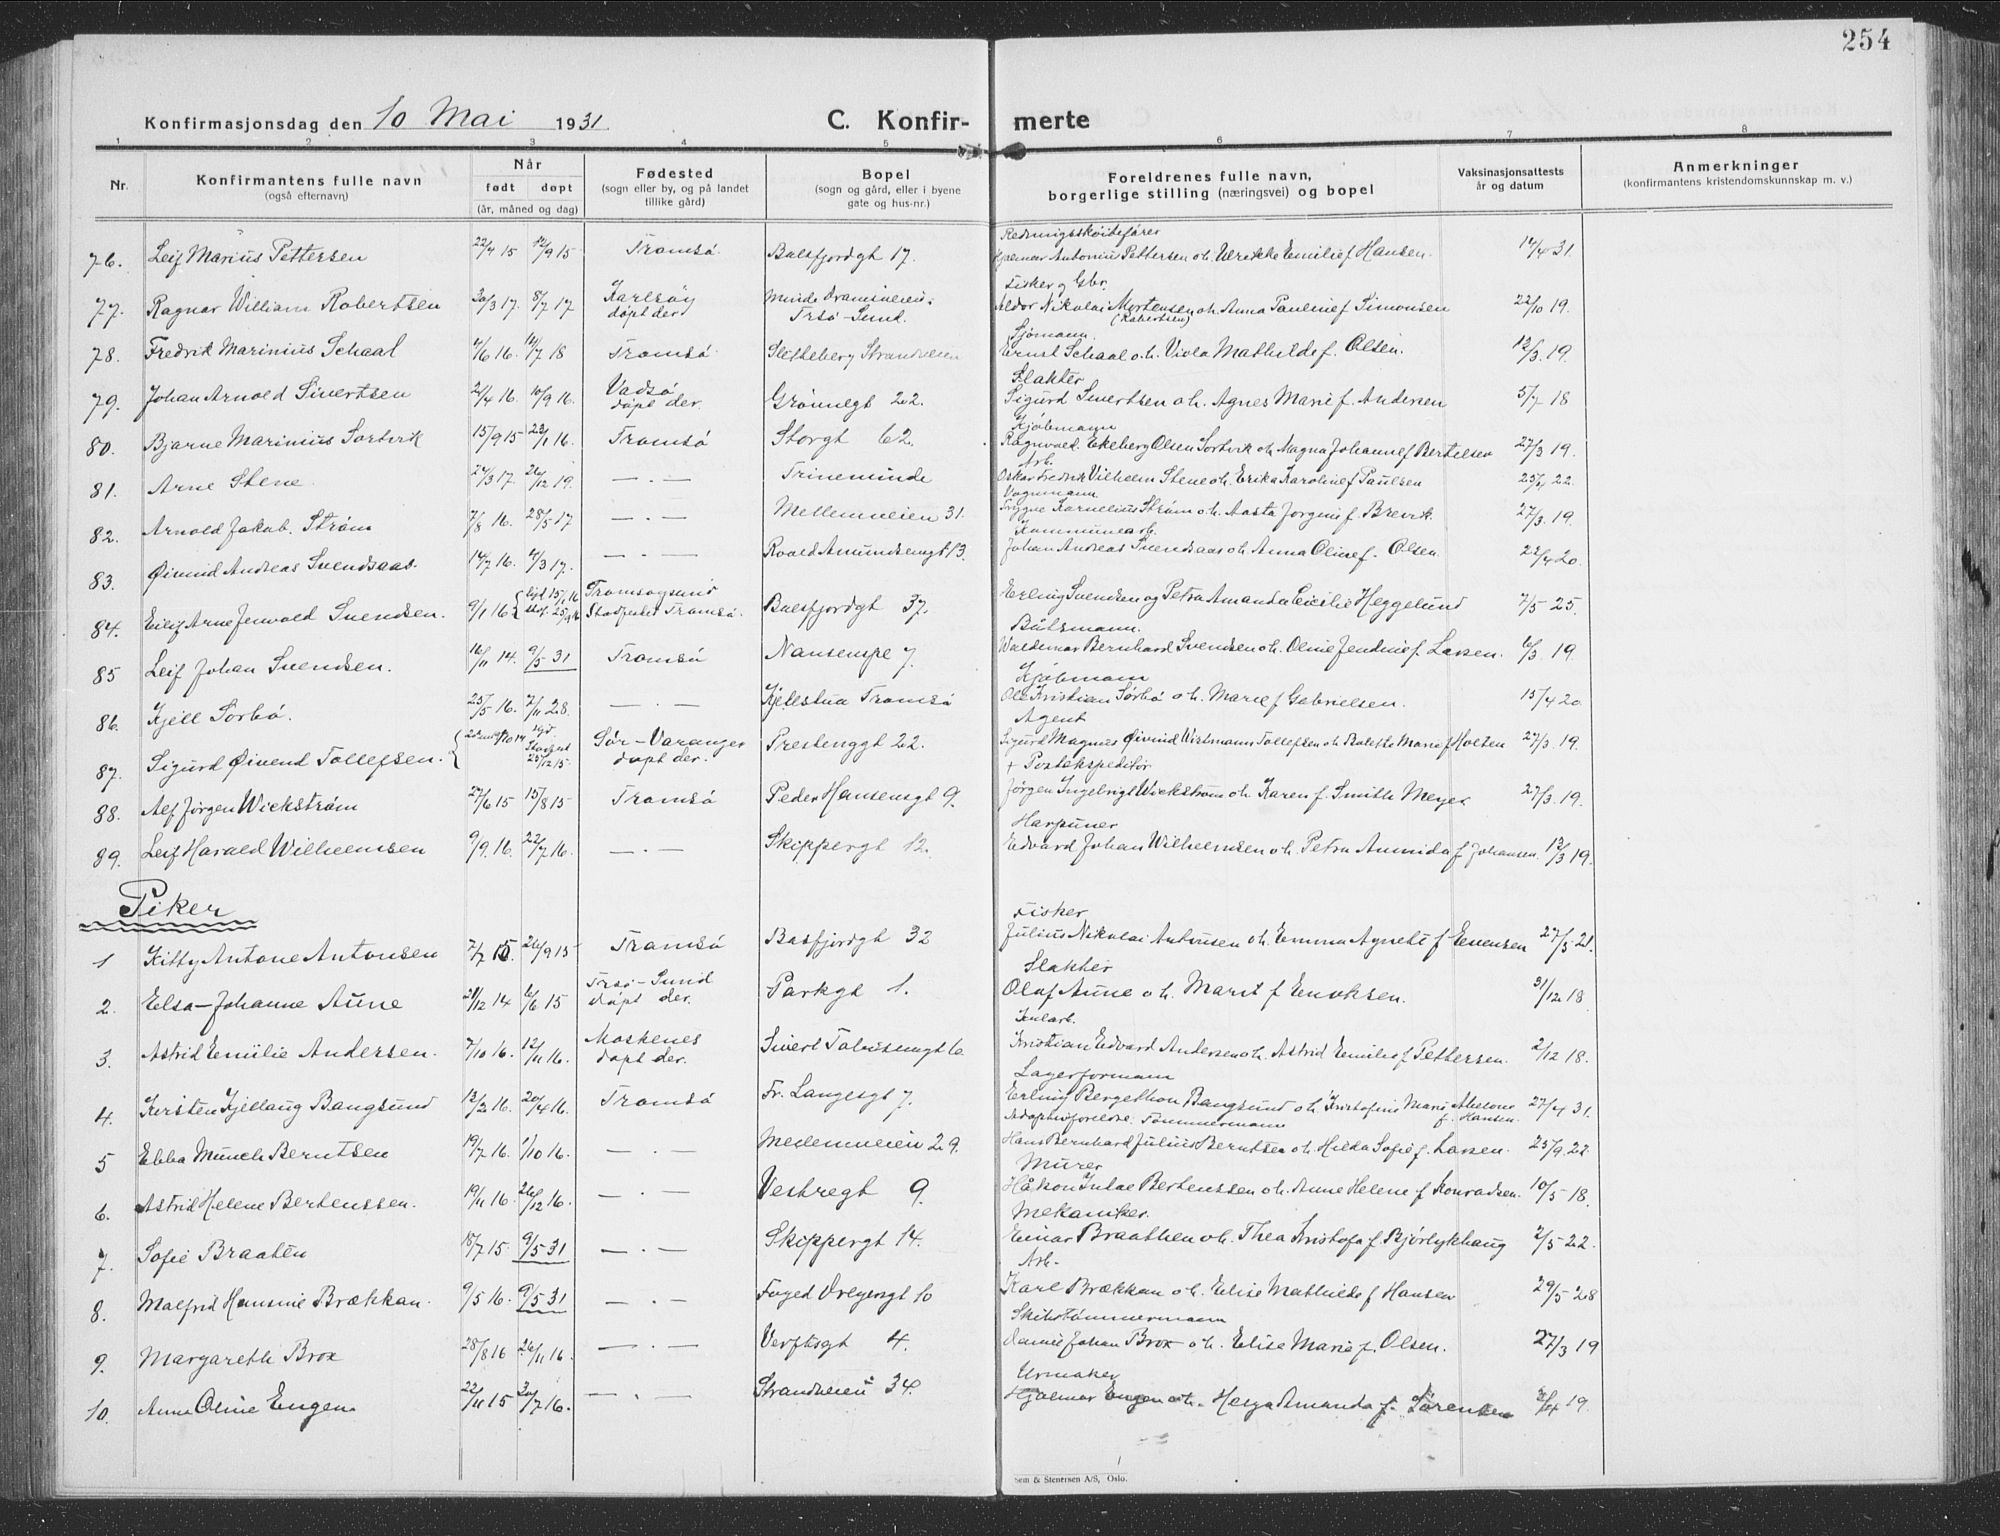 254
Konfirmasjonsdag den 10 Mai 1931
C. Konfir- merte
1 2 3 4 5 6 7 8
Nr.
Konfirmantens fulle navn
(også efternavn)
Når
født døpt
(år, måned og dag)
Fødested
(sogn eller by, og på landet
tillike gård)
Bopel
(sogn og gård, eller i byene
gate og hus-nr.)
Foreldrenes fulle navn,
borgerlige stilling (næringsvei) og bopel
Vaksinasjonsattests
år og datum
Anmerkninger
(konfirmantens kristendomskunnskap m. v.)
Redningsskøitefører
76. Leif Marius Pettersen 22/4 15 12/9 15 Tromsø. Balsfjordgt 17. Hjalmar Antonius Pettersen o.h. Ulrikke Emilie f Hansen. 14/4 31.
Fisker og Gbr.
77. Ragnar William Robertsen 30/3 17. 8/7 17 Karlsøy døpt der Minde Tr.sø-Sund. Aldor Nikolai Mortensen (Robertsen) o.h. Anna Pauline f Simonsen 22/10 19.
Sjømann
78. Fredrik Marinius Schaal /6 16. /7 18 Tromsø. Strandveien Ernst Schaal o.h. Viola Mathilde f. Olsen. 12/3. 19.
Slakter
79. Johan Arnold Sivertsen 2/4 16. 10/9 16. Vadsø døpt der. Grønnegt 22. Sigurd Sivertsen o.h. Agnes Marie f. Andersen 5/7 18
Kjøbmann
80. Bjarne Marinius Sorbvik 15/9 15 23/1 16. Tromsø Storgt 62. Ragnvald. Ekeberg Olsen Sorbvik o.h. Magna Johanne f Bertelsen 27/3 19.
Arb.
81. Arne Stene 24/3 17. 26/12 19. — . — Trineminde Oskar Fredrik Vilhelm Stene o.h. Erika Karoline f Paulsen 25/4 22.
Vognmann
82. Arnold Jakob. Strøm 7/8 16. 28/5 17 — . — Mellemveien 31. Trygve Kornelius Strøm o.h. Aasta Jorgine f. Brevik. 27/3. 19.
Kommunearb.
83. Øivind Andreas Svendsaas. 14/7 16. 4/3 17. — . — Roald Amundsensgt 13. Johan Andreas Svendsaas o.h. Anna Oline f. Olsen. 22/4 20.
84. Eilif Arne Jenvold Svendsen. 9/1 16 { 15/1 16 25/9 16 Tromsøysund Stadfestet Tromsø. Balsfjordgt 37. Erling Svendsen og Petra Amanda Cecilie Heggelund 7/5 25.
Båtsmann.
85 Leif Johan Svendsen. 16/11 14. 9/5 31 Tromsø Nansenspl 7. Waldemar Bernhard Svendsen o.h. Oline Jendine f. Larsen. 6/3 19.
Kjøbmann
86. Kjell Sorbø. 25/5 16. 7/11 28. — . — Kjellstua Tromsø Ole Kristian Sørbø o.h. Marie f Gabrielsen. 15/4 20
Agent
87. Sigurd Øivend Tollefsen. { 25/12 15 Sør-Varanger døpt der. Prestenggt 22. Sigurd Magnus Øivind Tollefsen o.h. Marie f Holten 27/3. 19.
+ Postekspeditør
88. Alf Jørgen Wickstrøm 27/6 15 15/8 15 Tromsø Peder Hansensgt 9. Jørgen Ingebrigt Wickstrøm o.h. Karen f. Smith Meyer 27/3. 19.
Harpuner
89. Leif Harald Wilhelmsen 9/9. 16. 22/7 16. — . — Skippergt 12. Edvard Johan Wilhelmsen o.h. Petra Ammida f Johansen. 13/3 19.
Piker
Fisker
1 Kitty Antone Antonsen 7/7 15. 26/9 15 Tromsø Balsfjordgt 32 Julius Nikolai Antonsen o.h. Emma Agnete f Evensen 27/5 21.
Slakter
2. Elsa-Johanne Aune 21/12 14 6/6 15 Tr.sø-Sund døpt der. Parkgt 1. Olaf Aune o.h. Marit f Enoksen. 31/12 18
Kularb.
3. Astrid Emilie Andersen. 7/10 16. 12/11 16. Moskenes døpt der. Sivert Tobiesensgt 6. Kristian Edvard Andersen o.h. Astrid Emilie f Pettersen. 2/12 18.
Lagerformann
4. Kirsten Kjellaug Bangsund 13/2 16. 20/4 16. Tromsø Fr. Langesgt 7. Erling Bergethon Bangsund o.h. Kristofine Marie Abelone f. Hansen. 27/4 31.
Adoptivforeldre: Tømmermann
5 Ebba Münch Berntsen 19/7 16. 1/10 16. — . — Mellemveien 29. Hans Bernhard Julius Berntsen o.h. Hilda Sofie f. Larsen. 25/9. 22
Murer
6. Astrid Helene Bertenssen. 19/11 16. 26/12 16. — . — Vestregt 9. Håkon Bertenssen o.h. Anne Helene f Konradsen. 10/5 18.
Mekaniker.
7. Sofie Braaten 18/7 15. 9/5 31 — . — Skippergt 14. Einar Braathen o.h. Thea Kristofa f Bjørlykhaug 2/5 22.
Arb.
8. Malfrid Hansine Brækkan. 9/5 16. 9/5 31 — . — Foged Dreyersgt 10 Karl Brækkan o.h. Elise Mathilde f Hansen 29/5 28
Skibstømmermann
9. Margareth Brox 28/8 16 26/11 16. — . — Verftsgt 4. Daniel Johan Brox o.h. Elise Marie f. Olsen. 27/3 19
Urmaker
10. Anna Oline Engen 22/11 15 30/7 16. — . — Strandveien 34. Hjalmar Engen o.h. Helga Amanda f. Sørensen 3/4 19.
Sem & Stenersen A/S, Oslo.